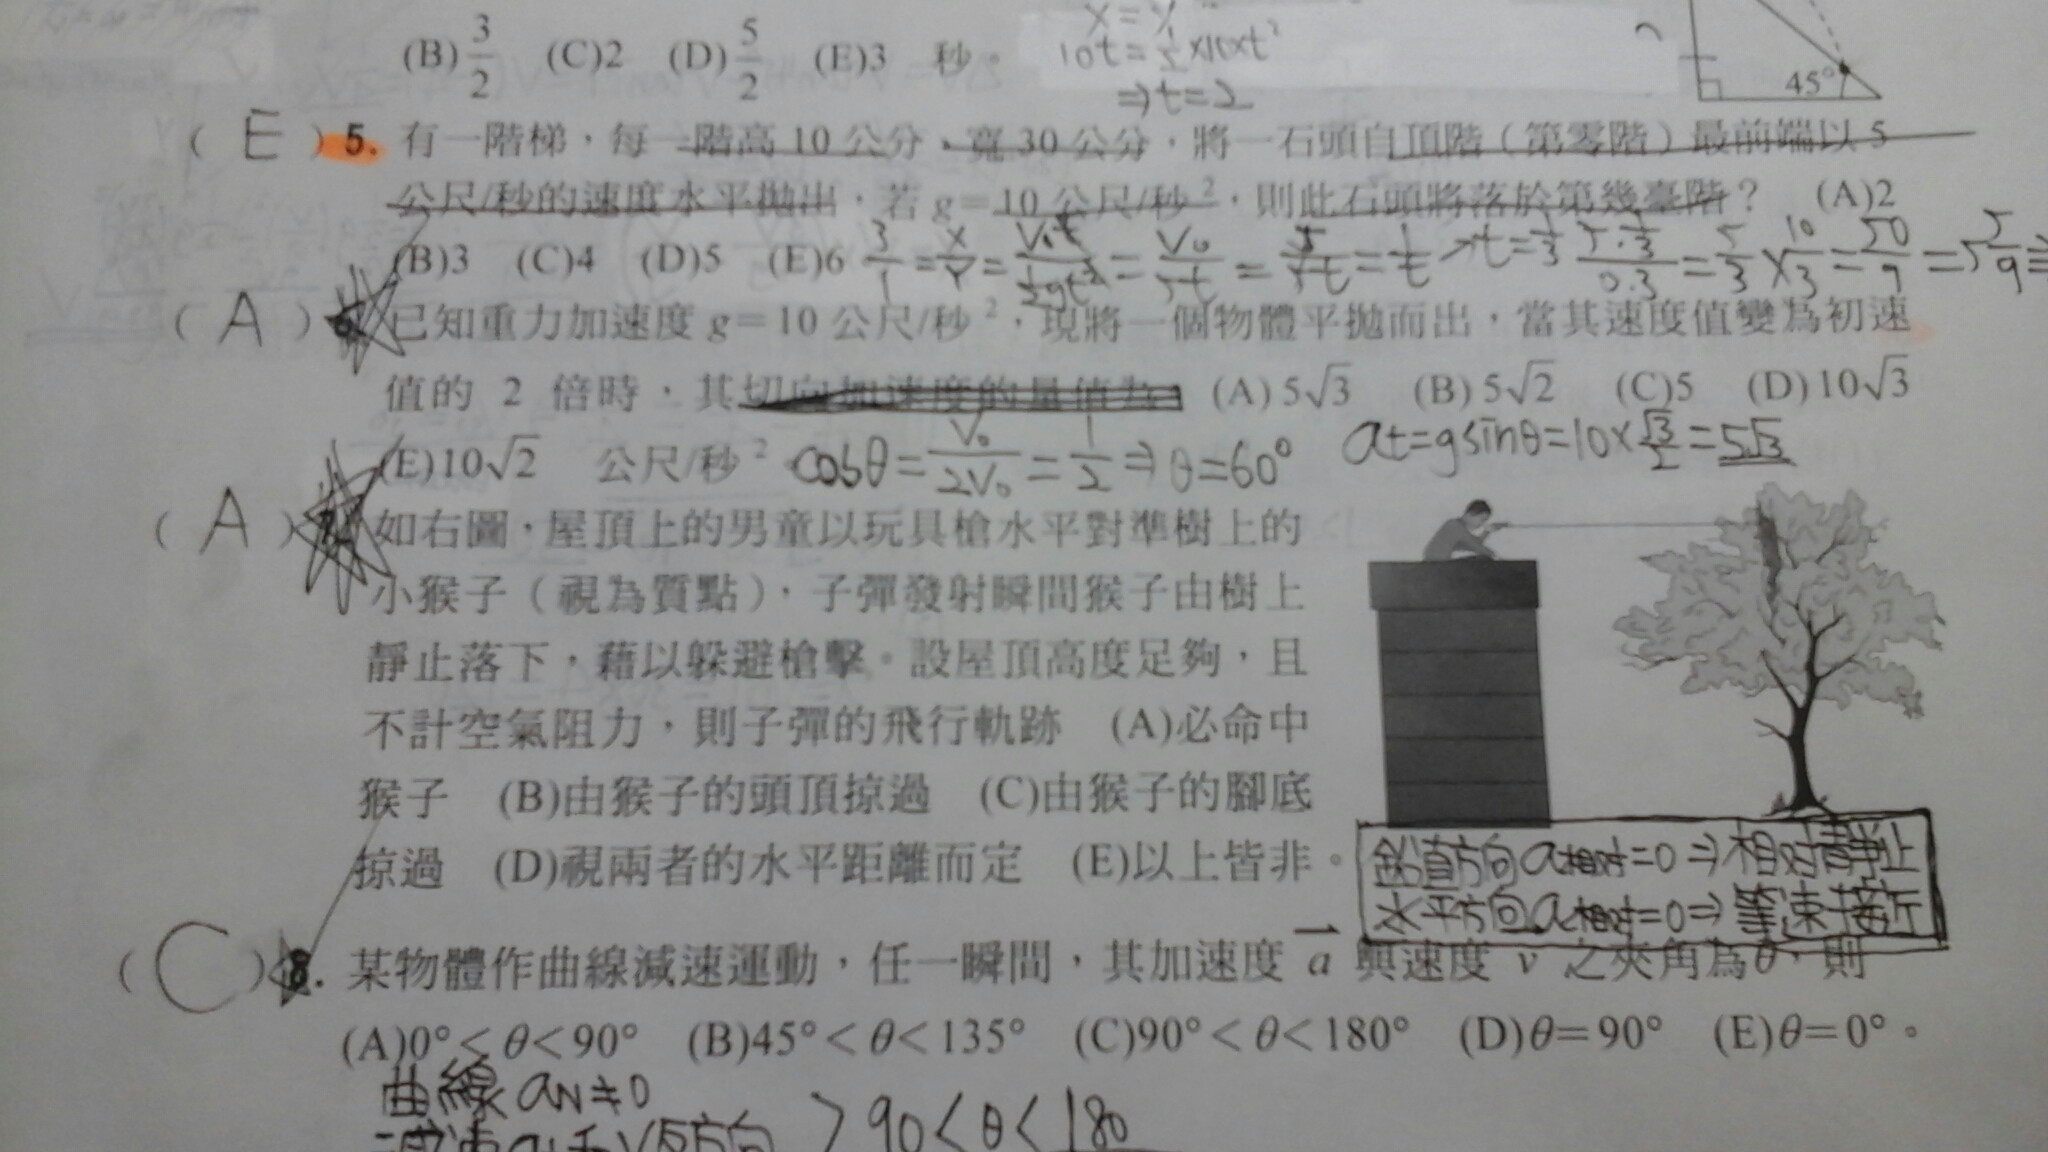 (B) 3/2 (C)2 (D) 5/2 (E)3 秒。
10t = 1/2 ×10×t²
⇒t=2
45°
( E ) 5. 有一階梯,每一階高 10 公分、寬 30 公分,將一石頭自頂階(第零階)最前端以 5
公尺/秒的速度水平拋出,若 g=10 公尺/秒²,則此石頭將落於第幾臺階? (A)2
(B)3 (C)4 (D)5 (E)6 3/1 = X/Y = V₀t / ½gt² = V₀/5t = 5/5t = 1/t → t=1/3 5·1/3 / 0.3 = 5/3 × 10/3 = 50/9 = 5 5/9 ⇒
( A ) 6. 已知重力加速度 g=10 公尺/秒²,現將一個物體平拋而出,當其速度值變為初速
值的 2 倍時,其切向加速度的量值為 (A) 5√3 (B) 5√2 (C)5 (D) 10√3
(E)10√2 公尺/秒² cosθ = V₀/2V₀ = 1/2 ⇒ θ=60° at=gsinθ=10×√3/2=5√3
( A ) 7. 如右圖,屋頂上的男童以玩具槍水平對準樹上的
小猴子(視為質點),子彈發射瞬間猴子由樹上
靜止落下,藉以躲避槍擊。設屋頂高度足夠,且
不計空氣阻力,則子彈的飛行軌跡 (A)必命中
猴子 (B)由猴子的頭頂掠過 (C)由猴子的腳底
掠過 (D)視兩者的水平距離而定 (E)以上皆非。
鉛直方向a相對=0⇒相對靜止
水平方向a相對=0⇒等速接近
( C ) 8. 某物體作曲線減速運動,任一瞬間,其加速度 a 與速度 v 之夾角為θ,則
(A)0°<θ<90° (B)45°<θ<135° (C)90°<θ<180° (D)θ=90° (E)θ=0°。
曲線 aN≠0
> 90<θ<180